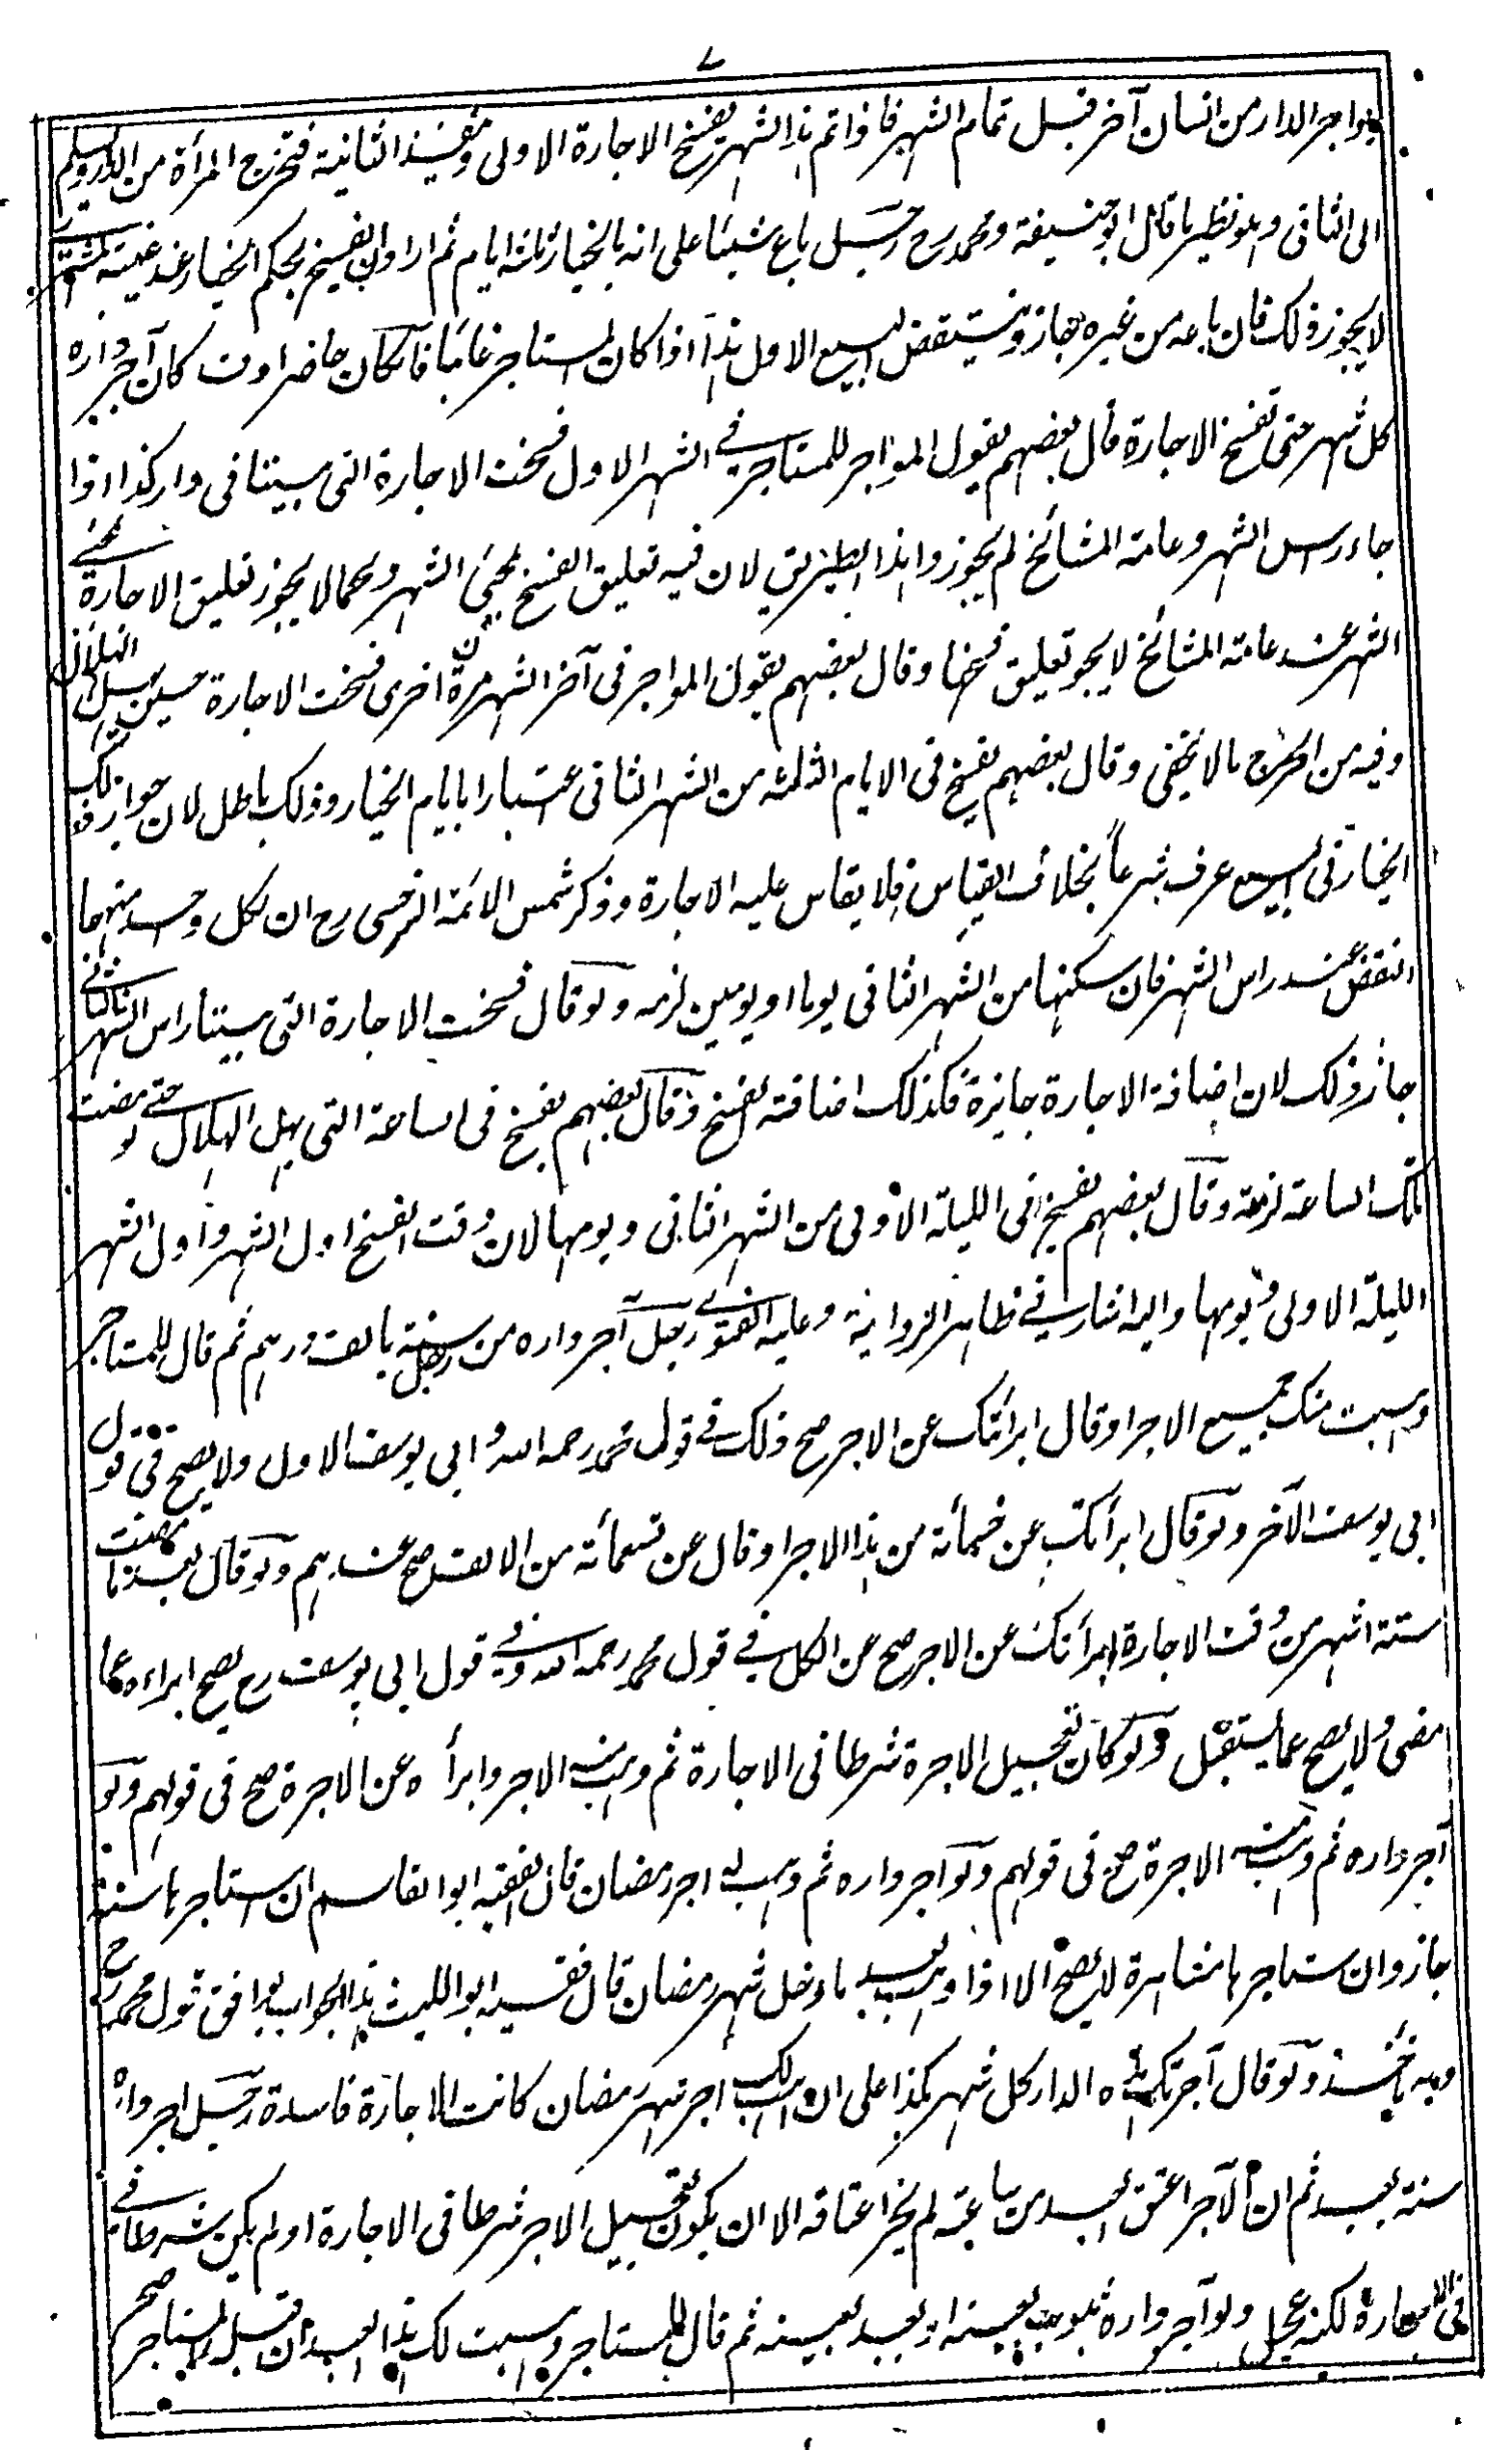 ٧
يواجر الدار من انسان آخر قبل تمام الشهر فاذا تم هذا الشهر تفسخ الاجارة الاولى و تنفذ الثانية فتخرج المرأة من الدار و يسلم
الى الثانى وهو نظير ما قال ابو حنيفة ومحمد رح رجل باع شيئا على انه بالخيار ثلثة ايام ثم اراد ان يفسخ بحكم الخيار عند غيبة المشترى
لا يجوز ذلك فان باعه من غيره جاز و ينتقض البيع الاول هذا اذا كان المستاجر غائبا فان كان حاضرا وقت كان آجر داره
كل شهر متى تفسخ الاجارة قال بعضهم يقول المؤاجر للمستاجر في الشهر الاول فسخت الاجارة التى بيننا فى دار كذا اذا
جاء رأس الشهر وعامة المشائخ لم يجوزوا هذا الطريق لان فيه تعليق الفسخ بمجئ الشهر وكما لا يجوز تعليق الاجارة بمجئ
الشهر عند عامة المشائخ لا يجوز تعليق فسخها وقال بعضهم يقول المواجر فى آخر الشهر مرة اخرى فسخت الاجارة حين يهل الهلال
وفيه من الحرج ما لا يخفى وقال بعضهم يفسخ فى الايام الثلثة من الشهر الثانى اعتبارا بايام الخيار وذلك باطل لان جواز ذلك
الخيار فى البيع عرف شرعاً بخلاف القياس فلا يقاس عليه الاجارة وذكر شمس الائمة السرخسى رح ان لكل واحد منهما
النقض عند راس الشهر فان سكنها من الشهر الثانى يوما او يومين لزمه ولو قال فسخت الاجارة التى بيننا راس الشهر الثانى
جاز ذلك لان اضافة الاجارة جايزة فكذلك اضافة الفسخ وقال بعضهم يفسخ فى الساعة التى يهل الهلال حتى لو مضت
تلك الساعة لزمته وقال بعضهم يفسخ فى الليلة الاولى من الشهر الثانى ويومها لان وقت الفسخ اول الشهر و اول الشهر
الليلة الاولى ويومها واليه اشار في ظاهر الرواية وعليه الفتوى رجل آجر داره من رجل سنة بالف درهم ثم قال للمستاجر
وهبت منك جميع الاجر او قال ابرأتك عن الاجر صح ذلك في قول محمد رحمه الله و ابى يوسف الاول ولا يصح فى قول
ابى يوسف الآخر ولو قال ابرأتك عن خمسمأئة من هذا الاجر او قال عن تسعمائة من الالف صح عندهم ولو قال بعد ما مضت
ستة اشهر من وقت الاجارة ابرأتك عن الاجر صح عن الكل في قول محمد رحمه الله وفي قول ابى يوسف رح يصح ابراءه عما
مضى ولا يصح عما يستقبل ولو كان تعجيل الاجرة شرطا فى الاجارة ثم وهب منه الاجر و ابرأه عن الاجرة صح فى قولهم ولو
آجر داره ثم وهب منه الاجرة صح فى قولهم ولو آجر داره ثم وهب له اجر رمضان قال الفقيه ابو القاسم ان استاجرها سنة
جاز وان استاجرها مشاهرة لا يصح الا اذا وهب بعد ما دخل شهر رمضان قال الفقيه ابو الليث هذا الجواب يوافق قول محمد رح
وبه نأخذ ولو قال آجرتك هذه الدار كل شهر بكذا على ان اهب لك اجر شهر رمضان كانت الاجارة فاسدة رجل اجر داره
سنة بعبد ثم ان الآجر اعتق العبد من ساعته لم يجز اعتاقه الا ان يكون تعجيل الاجر شرطا فى الاجارة او لم يكن شرطا في
فى الاجارة لكنه عجل ولو آجر داره بثوب بعينه او بعبد بعينه ثم قال للمستاجر وهبت لك هذا العبد ان قبل المستاجر صح